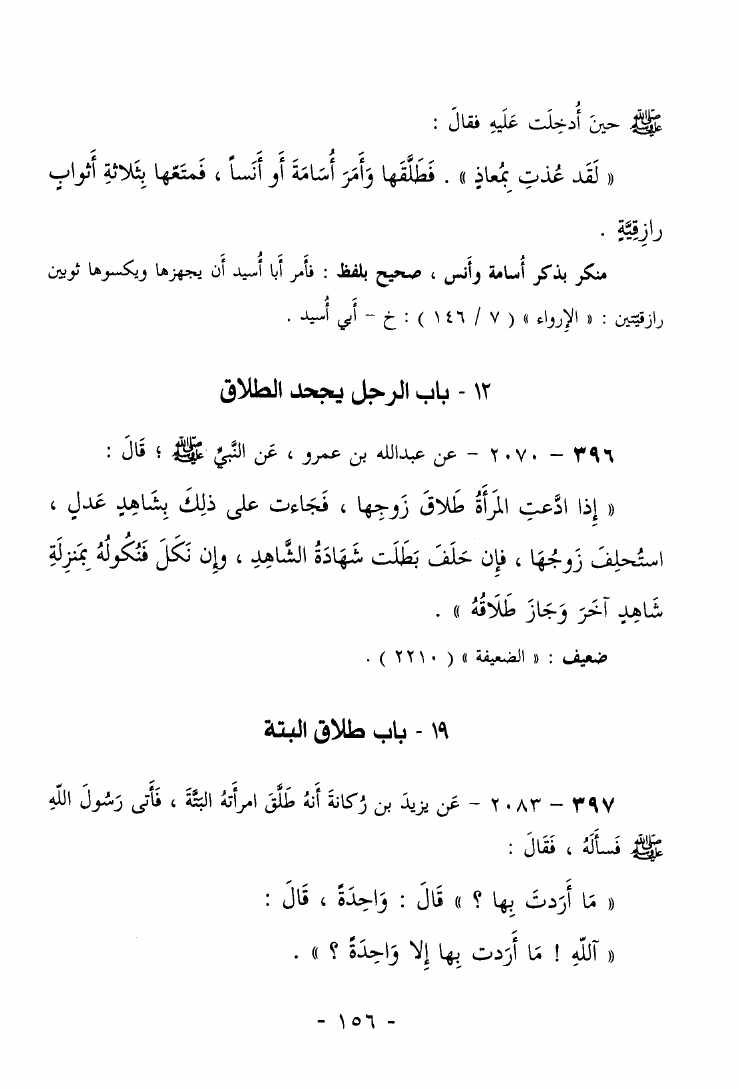 ﷺ حينَ أُدخِلَت عَلَيهِ فقالَ :
« لَقَد عُذتِ بِمُعاذٍ » . فَطَلَّقَها وَأَمَرَ أُسَامَةَ أَو أَنَساً ، فَمتَعّها بِثَلاثةِ أَثوابٍ
رازِقِيَّةٍ .
منكر بذكر أُسامة وأنس ، صحيح بلفظ : فأمر أبا أُسيد أن يجهزها ويكسوها ثوبين
رازقيّتين : « الإرواء » ( ٧ / ١٤٦ ) : خ – أَبي أُسيد .
١٢ - باب الرجل يجحد الطلاق
٣٩٦ – ٢٠٧٠ – عن عبدالله بن عمرو ، عَن النَّبيِّ ﷺ ؛ قَالَ :
« إِذا ادَّعتِ المَرأَةُ طَلاقَ زَوجِها ، فَجَاءت على ذلِكَ بِشَاهِدٍ عَدلٍ ،
استُحلِفَ زَوجُهَا ، فإِن حَلَفَ بَطَلَت شَهَادَةُ الشَّاهِدِ ، وإِن نَكَلَ فَنُكُولُهُ بِمَنزِلَةِ
شَاهِدٍ آخَرَ وَجَازَ طَلَاقُهُ » .
ضعيف : « الضعيفة » ( ٢٢١٠ ) .
١٩ - باب طلاق البتة
٣٩٧ – ٢٠٨٣ – عَن يزيدَ بن رُكانةَ أَنهُ طَلَّقَ امرأَتهُ البَتَّةَ ، فَأَتى رَسُولَ اللّهِ
ﷺ فَسأَلَهُ ، فَقَالَ :
« مَا أَرَدتَ بِها ؟ » قَالَ : وَاحِدَةً ، قَالَ :
« آللّهِ ! مَا أَرَدت بِها إِلا وَاحِدَةً ؟ » .
- ١٥٦ -